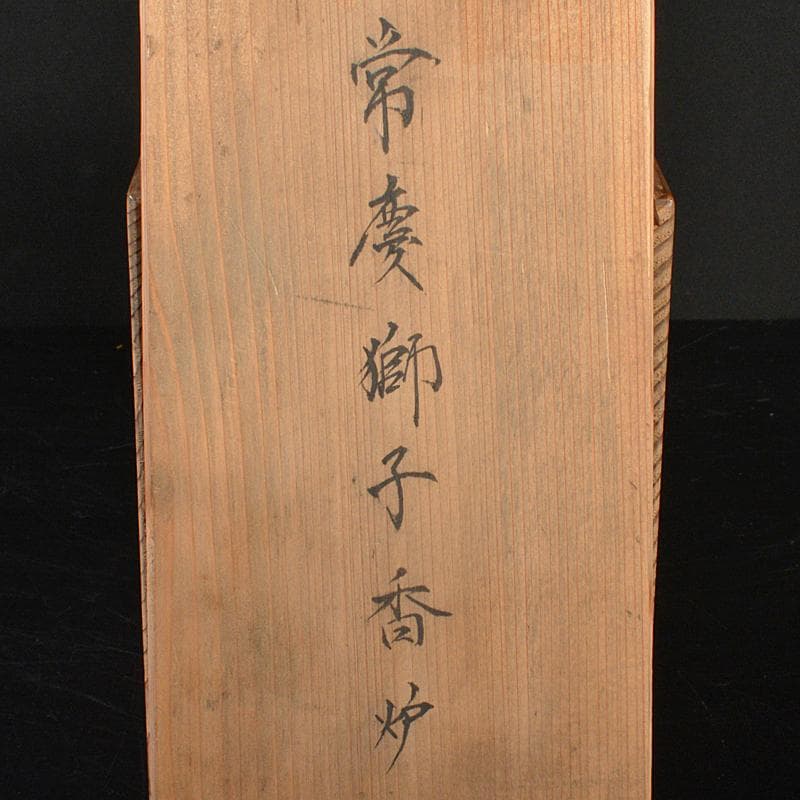 常慶獅子香炉